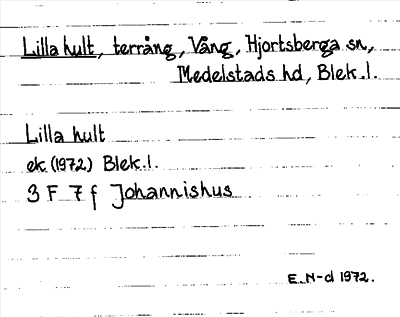 Lilla hult, terräng, Vång, Hjortsberga sn,
Medelstads hd, Blek.l.
Lilla hult
ek (1972) Blek.l.
3 F 7 f Johannishus
E.N-d 1972.